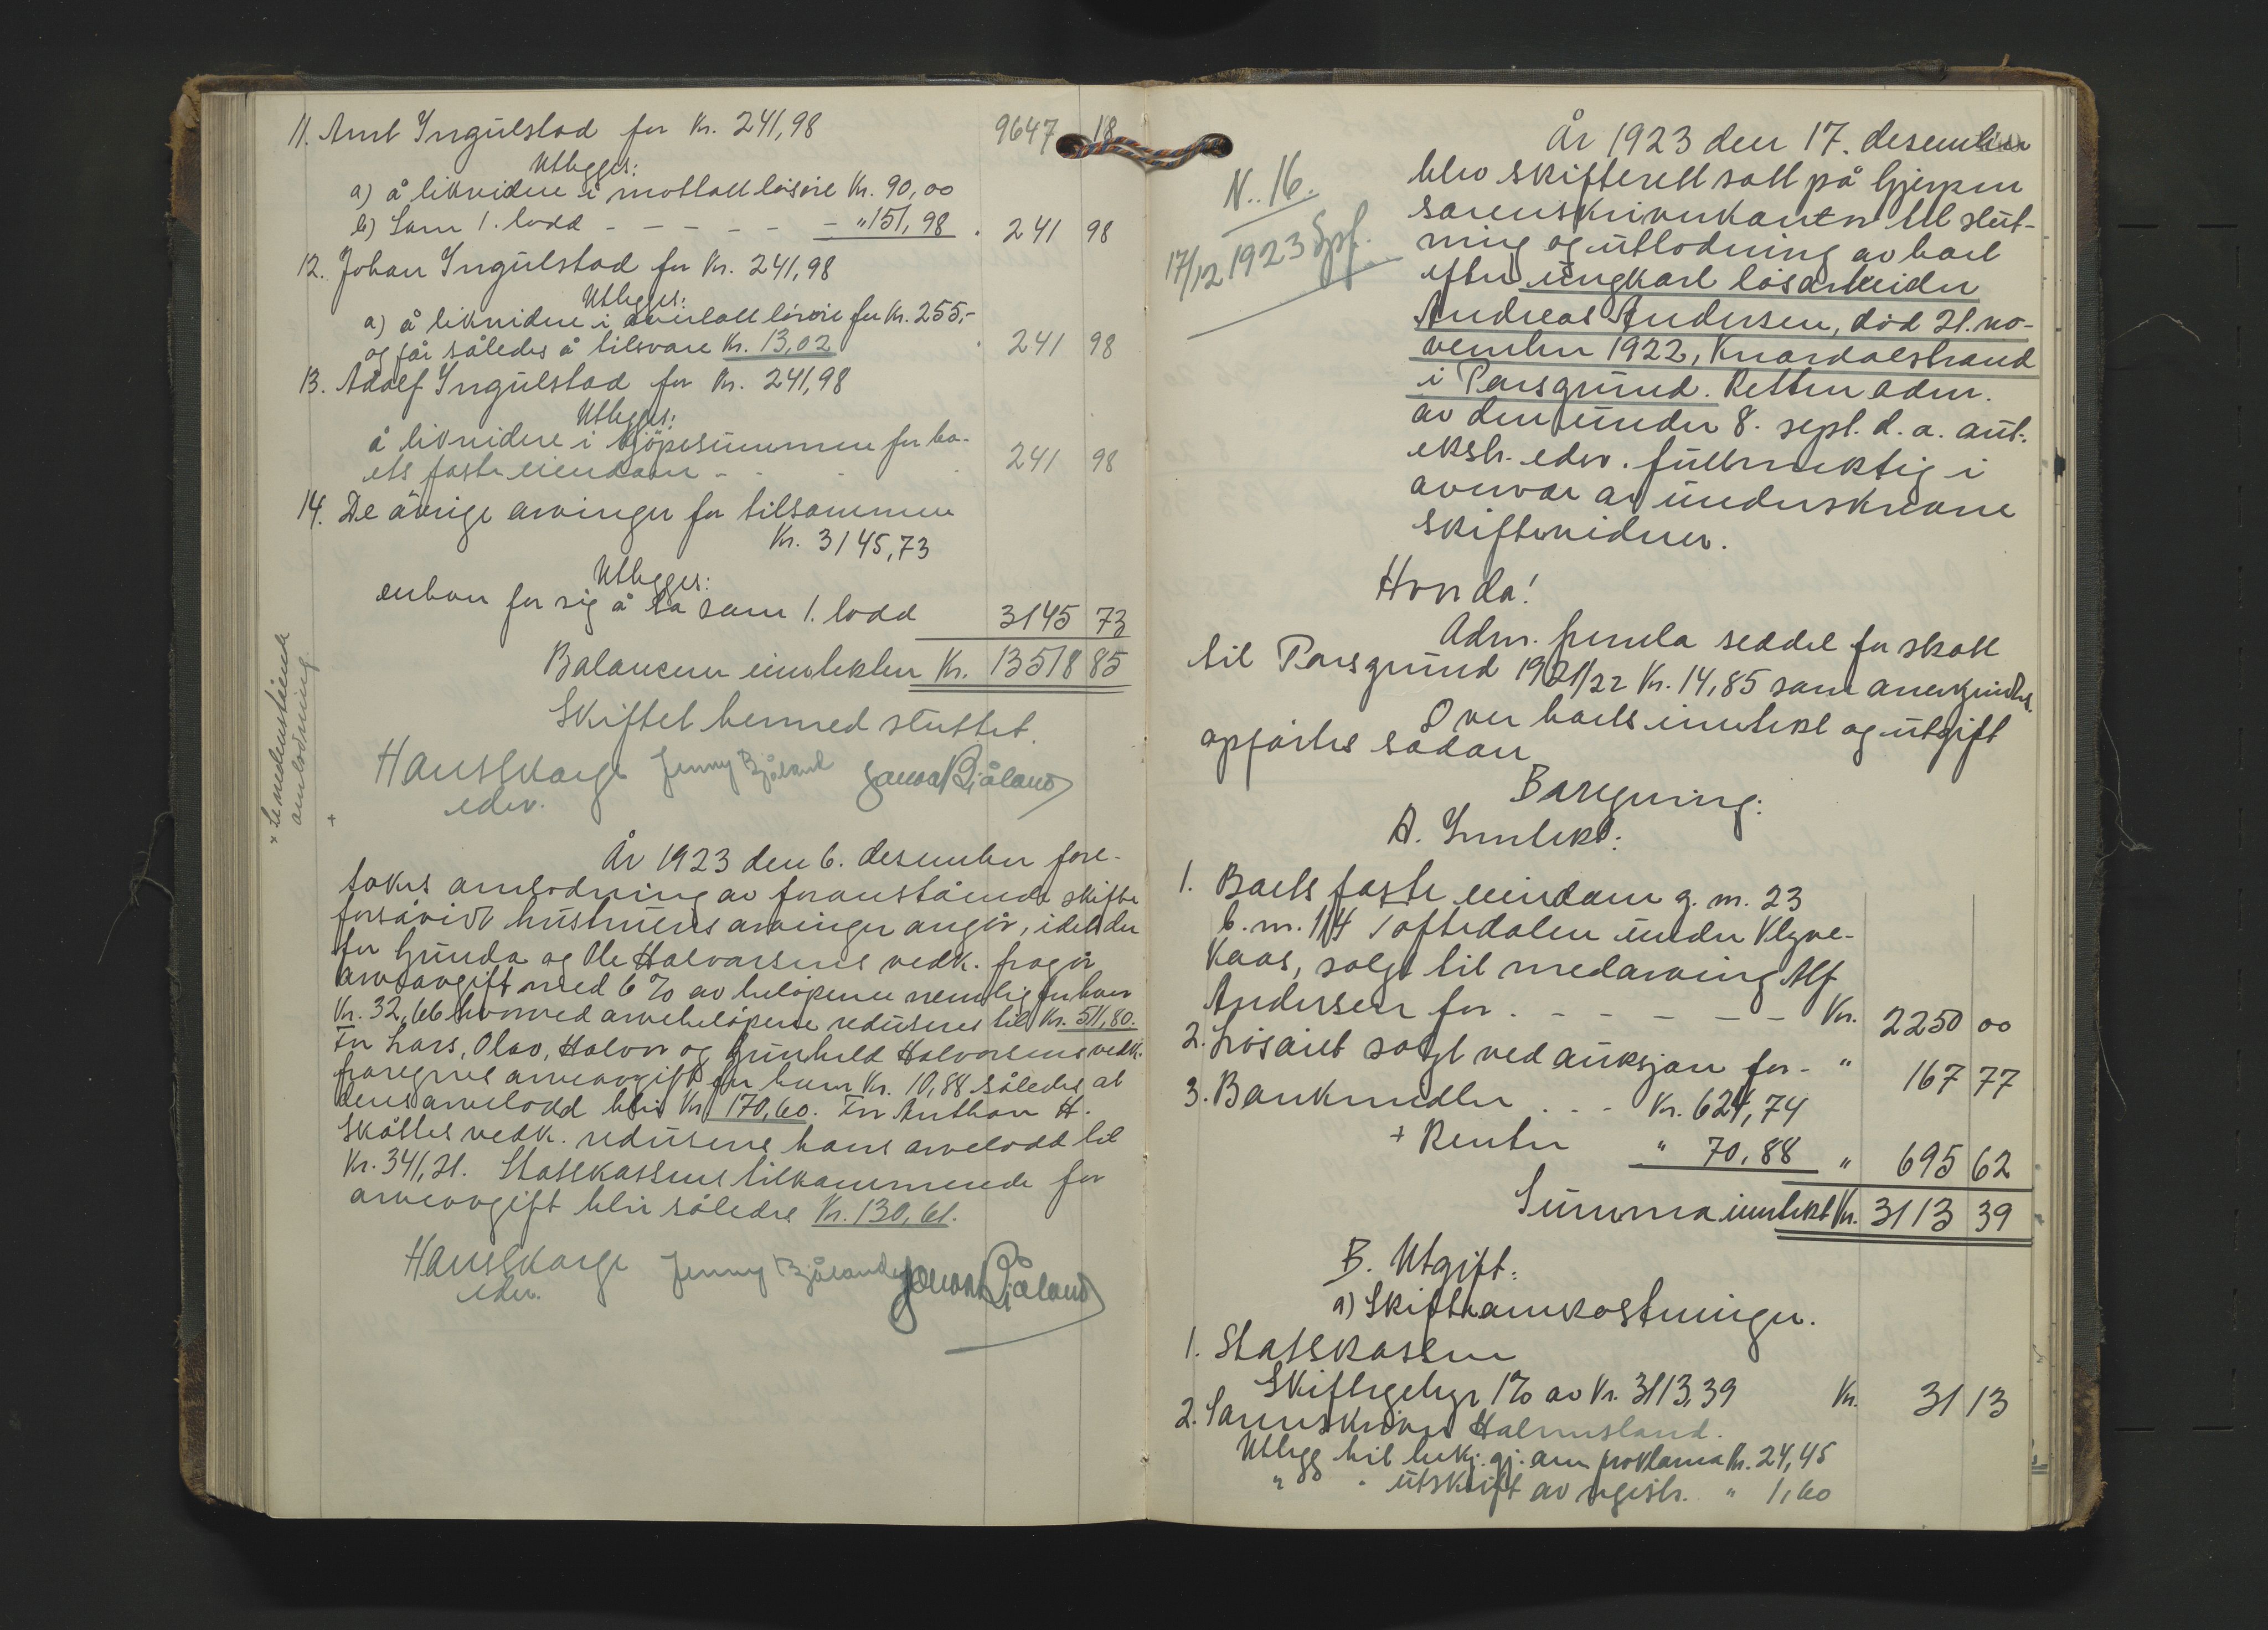 11. Arnt Ingulstad for Kr. 241,98 9647 18
Utlegges:
a) å likvidere i mottatt løsøre Kr. 90,00
b) Som 1. lodd - - - - - - " 151,98 . 241 98
12. Johan Ingulstad for Kr. 241,98
Utlegges:
a) å likvidere i overtatt løsøre for Kr. 255,-
og får således å tilsvare Kr. 13,02 241 98
13. Adolf Ingulstad for Kr. 241,98
Utlegges:
å likvidere i kjøpesummen for bo-
ets faste eiendom - - 241 98
14. De øvrige arvinger for tilsammen
Kr. 3145,73
Utlegges:
enhver for sig å ta som 1. lodd 3145 73
Balancen inntekten Kr. 13518 85
Skiftet hermed sluttet.
Hans Skarge Jenny Bjåland Bjåland
edsv.
+
+ Senedenstående
omlodning.
År 1923 den 6. desember fore-
tokes omlodning av foranstående skifte
forsåvidt hustruens arvinger angår, idet der
for Gunda og Ole Halvorsens vedk. fragår
arveavgift med 6 % av beløpene nemlig for hver
Kr. 32,66 hvorved arvebeløpene reduseres til Kr. 511,80.
For Lars, Olav, Halvor og Gunhild Halvorsens vedk.
fraregnes arveavgift for hver Kr. 10,88 således at
deres arvelodd blir Kr. 170,60. For Anthon H.
Skåttes vedk. reduseres hans arvelodd til
Kr. 341,21. Statskassens tilkommende for
arveavgift blir således Kr. 130,61.
Hans Skarge Jenny Bjåland Bjåland
edsv.
År 1923 den 17. desember
blev skifterett satt på Gjerpen
sorenskriverkontor til slut-
ning og utlodning av boet
efter ungkarl løsarbeider
Andreas Andersen, død 21. no-
vember 1922, Knardalstrand
i Porsgrund. Retten adm.
av den under 8. sept. d. a. aut.
ekstr. edsv. fullmektig i
overvær av underskrevne
skiftevidner.
N. 16.
17/12 1923 Spf.
Hvorda!
Adm. fremla seddel for skatt
til Porsgrund 1921/22 Kr. 14,85 som anerkjendtes.
Over boets inntekt og utgift
opførtes sådan
Boregning:
A. Inntekt:
1. Boets faste eiendom g. nr. 23
b. nr. 114 Toftedalen under Klyve-
Kaas, solgt til medarving Alf
Andersen for . - - - - - - Kr. 2250 00
2. Løsøret solgt ved auksjon for - " 167 77
3. Bankmidler . . - Kr. 624,74
+ Renter " 70,88 " 695 62
Summa inntekt Kr. 3113 39
B. Utgift:
a) Skifteomkostninger.
1. Statskassen
Skiftegebyr 1% av Kr. 3113,39 Kr. 31 13
2. Sorenskriver Halmrsland.
Utlegg til bekj. gj. om proklama Kr. 24,45
" " utskrift av registr. " 1,60